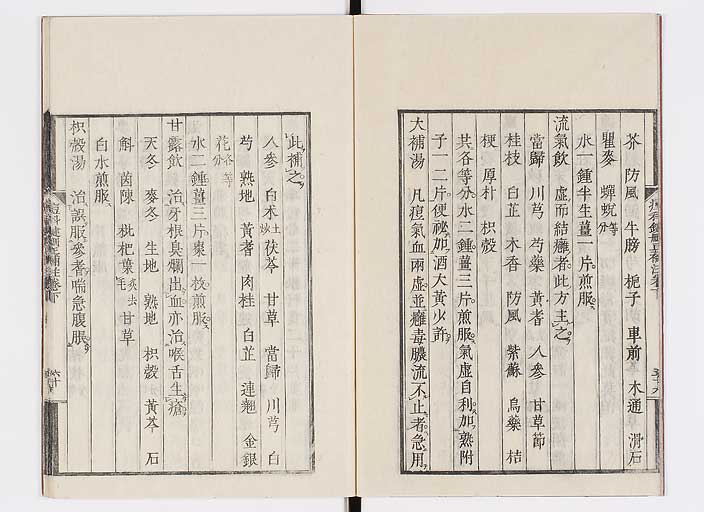 芥 防風 牛膀 梔子 車前 木通 滑石
瞿麥 蟬蛻各等分
水一鍾半生薑一片煎服
流氣飲 虛而結癰者此方主之
當歸 川芎 芍藥 黃耆 人參 甘草節
桂枝 白芷 木香 防風 紫蘇 烏藥 桔
梗 厚朴 枳殼
其各等分水二鍾薑三片煎服氣虛自利加熟附
子一二片便祕加酒大黃少許
大補湯 凡痘氣血兩虛並癰毒膿流不止者急用
此補之
人參 白朮土炒 茯苓 甘草 當歸 川芎 白
芍 熟地 黃耆 肉桂 白芷 連翹 金銀
花各等分
水二鍾薑三片棗一枚煎服
甘露飲 治牙根臭爛出血亦治喉舌生瘡
天冬 麥冬 生地 熟地 枳殼 黃芩 石
斛 茵陳 枇杷葉炙去毛 甘草
白水煎服
枳殼湯 治誤服參耆喘急腹脹